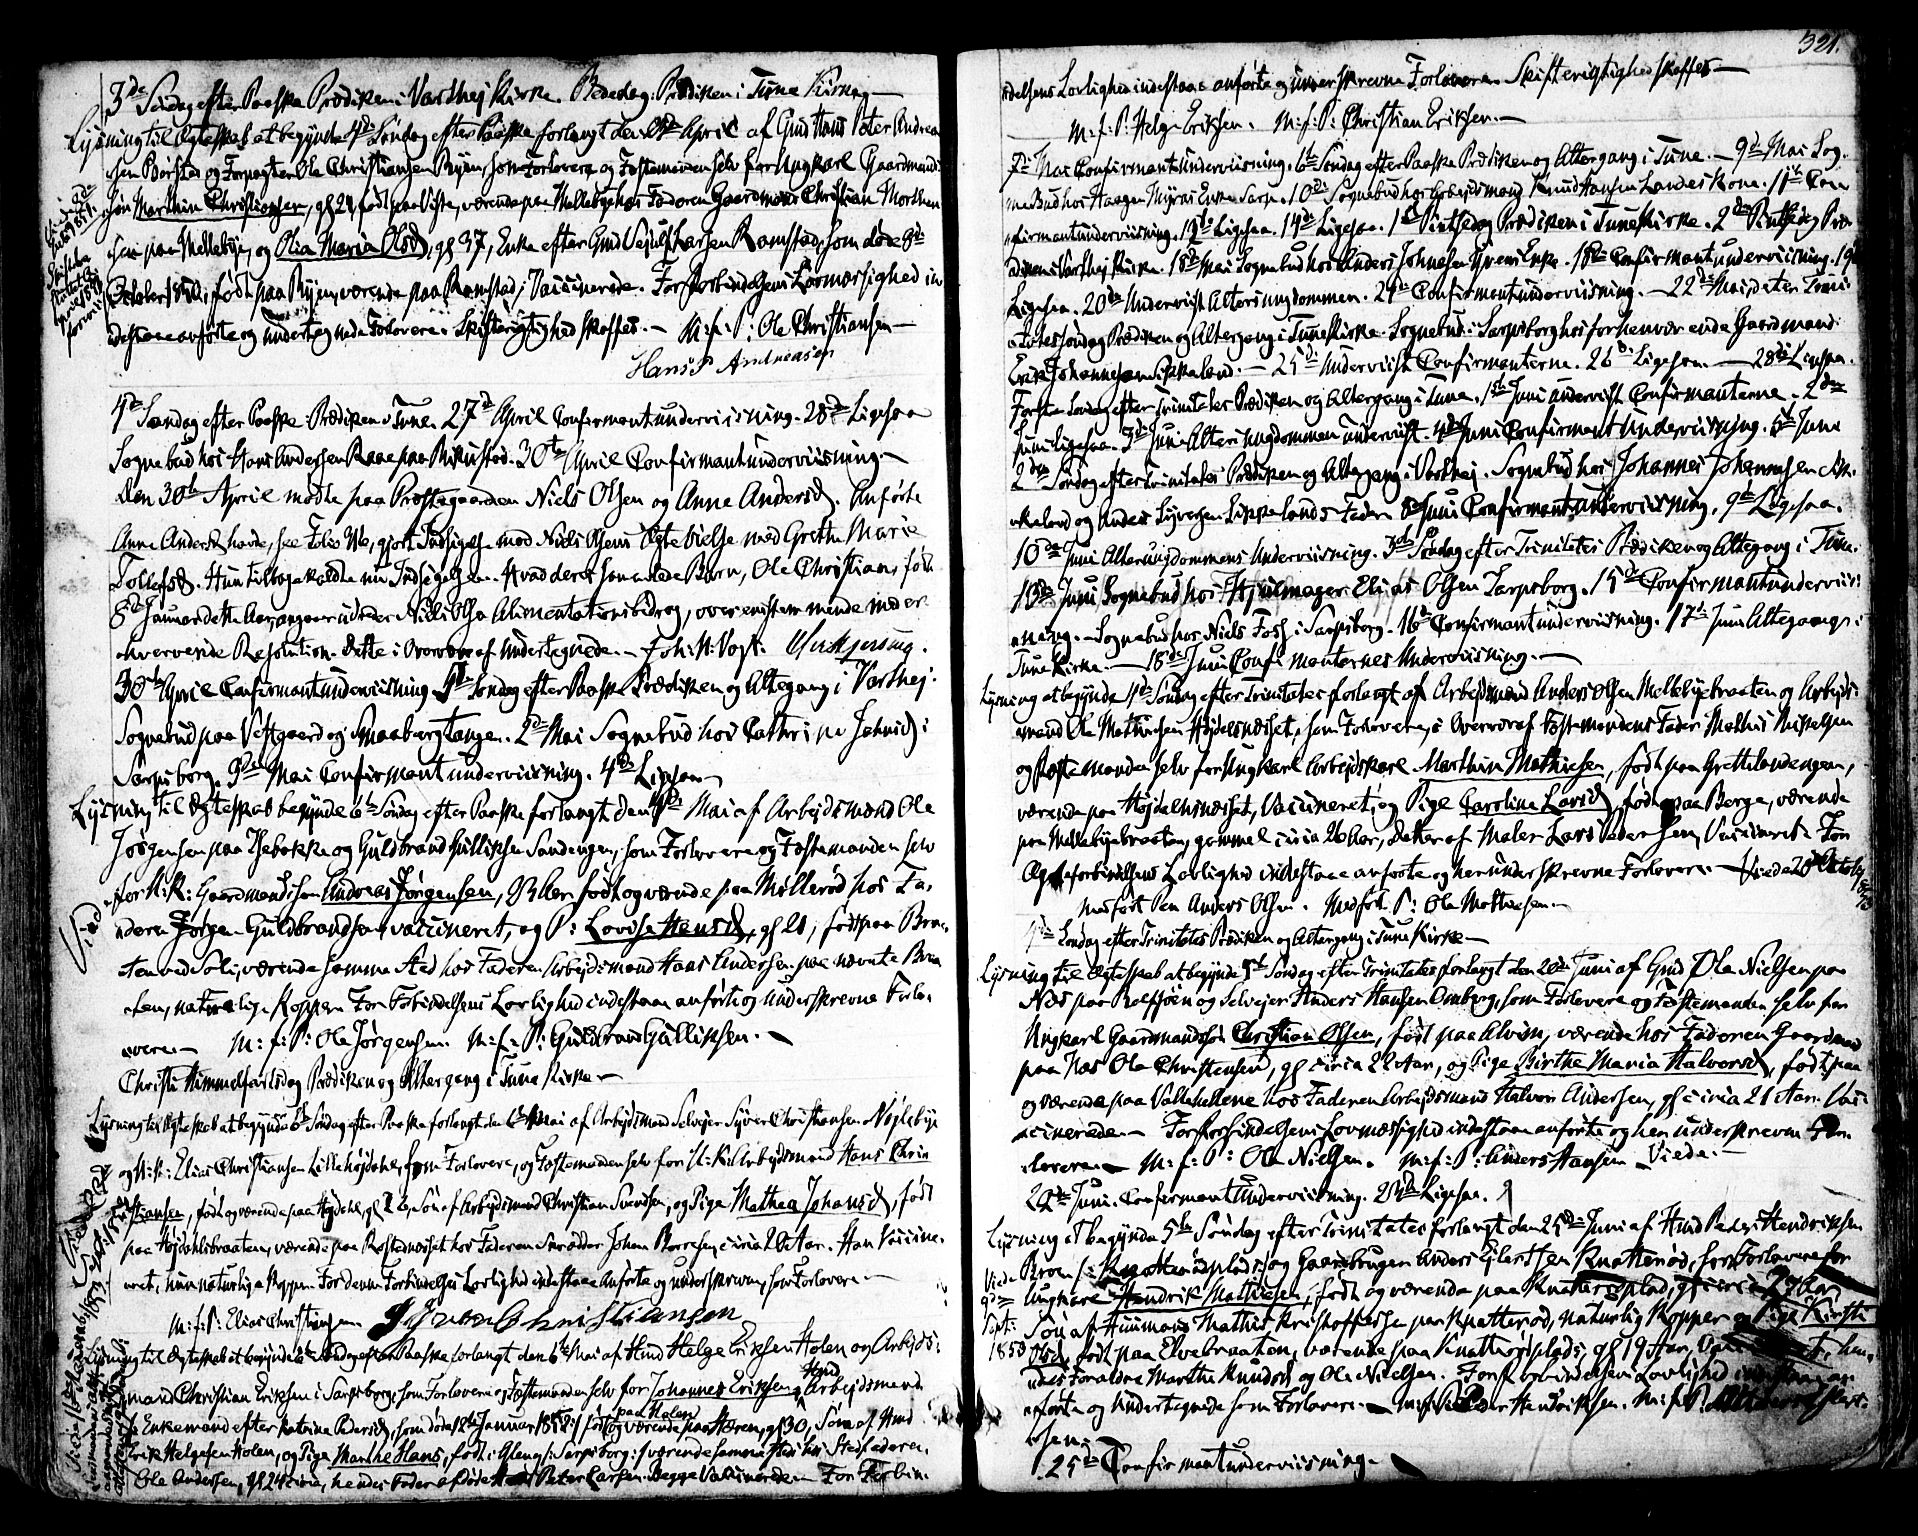 3de Søndag efter Paaske Prædiken i Varthej Kirke. Bededag: Prædiken i Tune Kirke.—
Lysning til Ægteskab at begynde 4de Søndag efter Paaske forlangt den April af Gmd Hans Peter Andrea
sen Børstad og Forpagter Ole Christiansen Ryen, som Forlovere og Fæstemanden selv for Ungkarl Gaardmand
søn Marthin Christiansen, gl 24, født paa Viste, værende paa Mellebye hos Faderen Gaardmand Christian Morthen
sen paa Mellebye, og Olia Maria Olsd, gl 37, Enke efter Gmd Larsen Ramstad, som døde 8de
October 1850, født paa Ryen, værende paa Ramstad, Vaccinerede. For Forbindelsens Lovmæssighed in
destaae anførte og undertegnede Forlovere. Skifterigtighed skaffes.— M:f:P: Ole Christiansen—
Hans P Andreasen
4de Søndag efter Paaske Prædiken i Tune. 27de April Confirmantunderviisning. 28de Ligesaa
Sognebud hos Hans Andersen Raae paa 30te April Confirmantunderviisning.—
Den 30te April mødte paa Præstegaarden Niels Olsen og Anne Andersd. Anførte
Anne Andersd havde, see Folio gjort Indsigelse mod Niels Olsens Ægtevielse med Grethe Marie
Tollefsd. Hun tilbagekaldte nu Indsigelsen. Hvad deres sammelede Barn, Ole Christian, født
8de Januar dette Aar, angaaer udreder Niels Olsen Alimentationsbidrag, overensstemmende med er
hvervende Resolution. Dette i Overvær af Undertegnede.— Joh. N. Vogt.
30te April Confirmantunderviisning. 5te Søndag efter Paaske Prædiken og Altergang i Varthej.
Sognebud paa Vestgaard og Smaabergtangen. 2den Mai Sognebud hos Cathrine i
Sarpsborg. 3die Mai Confirmantunderviisning. 4de Ligesaa
Lysning til Ægteskab begynde 6te Søndag efter Paaske forlangt den 4de Mai af Arbejdsmand Ole
Jørgensen paa Thebakke og Guldbrand Gullichsen Sandengen, som Forlovere og Fæstemanden selv
for U:K: Gaardmandssøn Andreas Jørgensen, 23 Aar, født og værende paa Møllerød hos Fa-
deren Jørgen Guldbrandsen, vaccineret, og P: Lovise Hansd, gl 21, født paa Braa-
ten ved Soli, værende samme Sted hos Faderen Arbejdsmand Hans Andersen paa nævnte Braa
ten, naturlige Kopper. For Forbindelsens Lovlighed indestaae anførte og underskrevne Forlo-
vere.— M:f:P: Ole Jørgensen. M:f:P: Guldbrand Gullichsen.—
Christi Himmelfartsdag Prædiken og Altergang i Tune Kirke.—
Lysning til Ægteskab at begynde 6te Søndag efter Paaske forlangt den 6te Mai af Arbejdsmand Selvejer Syver Christiansen Nøglebye
og U:K: Elias Christiansen Lillehøjdahl, som Forlovere, og Fæstemanden selv for U:K: Arbejdsmand Hans Chri
stiansen, født og værende paa Højdahl, gl 26, Søn af Arbejdsmand Christian Svendsen, og Pige Mathea Johansd, født
paa Højdahlsbraaten, værende paa hos Faderen Skrædder Johan circa 20 Aar. Han Vaccine-
ret, hun naturlige Kopper. For denne Forbindelses Lovlighed indestaae Anførte og underskrevne, som Forlovere—
M:f:P: Elias Christiansen Syver Christiansen
Lysning til Ægteskab at begynde 6te Søndag efter Paaske forlangt den 6te Mai af Gmd Helge Eriksen Holen og Arbejds-
mand Christian Eriksen i Sarpsborg, som Forlovere og Fæstemanden selv for Johannes Eriksen, Arbejdsmand
Enkemand efter Katrine Pedersd, som døde Januar født og værende paa Holen, gl 30, Søn af Gmd
Erik Helgesen Holen, og Pige Marthe Hansd, født i Gleng: Sarpsborg: værende samme Sted hos Stedfaderen
Ole Andersen, gl 24 circa, hendes Fader afdøde Peter Larsen. Begge Vaccinerede. For Forbin-
321.
delsens Lovlighed indestaae anførte og underskrevne Forlovere. Skifterigtighed skaffes—
M:f:P: Helge Eriksen. M:f:P: Christian Eriksen.—
7de Mai Confirmantunderviisning. 6te Søndag efter Paaske Prædiken og Altergang i Tune.— 9de Mai Sog-
nebud hos Haagen Myras Enke Sarp. 10de Sognebud hos Arbejdsmand Knud Hansen Landes Kone. 11te Con
firmantunderviisning. 12te Ligesaa. 14de Ligesaa. 1ste Pintsedag Prædiken i Tune Kirke. 2den Pintsedag Præ
diken i Varthej Kirke. 18de Mai Sognebud hos Anders Johnsen Enke. 18de Confirmantunderviisning. 19de
Ligesaa. 20de Underviist Alterungdommen. 21de Confirmantunderviisning.— 22de Mai, dater Trini-
tates Søndag Prædiken og Altergang i Tune Kirke. Sognebud i Sarpsborg hos forhenværende Gaardmand
Erik Johannesen Sikkeland.— 25de Underviist Confirmanterne. 26de Ligesaa.— 28de Ligesaa.
Første Søndag efter Trinitates Prædiken og Altergang i Tune. 1ste Juni underviist Confirmanterne. 2den
Juni Ligesaa. 3die Juni Alterungdommen underviist. 4de Juni Confirmantunderviisning. 5te Juni
2den Søndag efter Trinitates Prædiken og Altergang i Varthej. Sognebud hos Johannes Johannesen
og Anders Syversen Sikkelands Fader. 8de Juni Confirmantunderviisning. 9de Ligesaa.
10de Juni Alterungdommens Underviisning. 3die Søndag efter Trinitates Prædiken og Altergang i Tune.
13de Juni Sognebud hos Hjulmager Elias Olsen Sarpsborg. 15de Confirmantunderviis-
ning.— Sognebud hos Niels Fosh i Sarpsborg. 16de Confirmantunderviisning. 17de Juni Altergang i
Tune Kirke.— 18de Juni Confirmanternes Underviisning.—
Lysning at begynde 4de Søndag efter Trinitates forlangt af Arbejdsmand Anders Olsen Mellebyebraaten og Arbejds-
mand Ole Mathisen Højdelsnæsset, som Forlovere, i Overvær af Fæstemandens Fader Mathis
og Fæstemanden selv for Ungkarl Arbejdskarl Marthin Mathisen, født paa Grettelandengen,
værende paa Højdelsnæsset, Vaccineret; og Pige Caroline Larsd, født paa Berge, værende
paa Mellebyebraaten, gammel circa 26 Aar, Datter af Maler Lars Pedersen, Vaccineret. For
Ægteforbindelsens Lovlighed indestaae anførte og herunderskrevne Forlovere— Viede October
Medført Pen Anders Olsen. Medført P: Ole Mathisen.—
4de Søndag efter Trinitates Prædiken og Altergang i Tune Kirke—
Lysning til Ægteskab at begynde 5te Søndag efter Trinitates forlangt den 20de Juni af Gmd Ole Nielsen paa
Næs paa Rolfsøen og Selvejer Anders Hansen Omberg, som Forlovere og Fæstemanden selv for
Ungkarl Gaardmandssøn Christian Olsen, født paa Alvim, værende hos Faderen Gaardmand
paa Næs Ole Christensen, gl circa 22 Aar, og Pige Birthe Maria Halvorsd, født paa
og værende paa Vallehellene hos Faderen Arbejdsmand Halvor Andersen, gl circa 21 Aar. Vac-
cinerede.— For Forbindelsens Lovmæssighed indestaae anførte og herunderskrevne For-
lovere.— M:f:P: Ole Nielsen. M:f:P: Anders Hansen. Viede.—
22de Juni. Confirmantunderviisning. 23de Ligesaa.
Lysning at begynde 5te Søndag efter Trinitates forlangt den 25de Juni af Hmd Peder Hendriksen
Knatterødplads og Gaardbruger Anders Eilertsen Knatterød, som Forlovere for
Ungkarl Hendrik Mathisen, født og værende paa Knatterødplads, gl circa
Søn af Huusmand Mathis Kristoffersen paa Knatterød, naturlig Kopper og Pige Kirsti
Olsd, født paa Elvebraaten, værende paa Knatterødplads, gl 19 Aar,
Forældre Marthe Knudsd og Ole Nielsen. For Forbindelsens Lovlighed
anførte og Undertegnede som Forlovere.— M:f:P: Peder Hendriksen. M:f:P:
sen.
25de Confirmantunderviisning.—